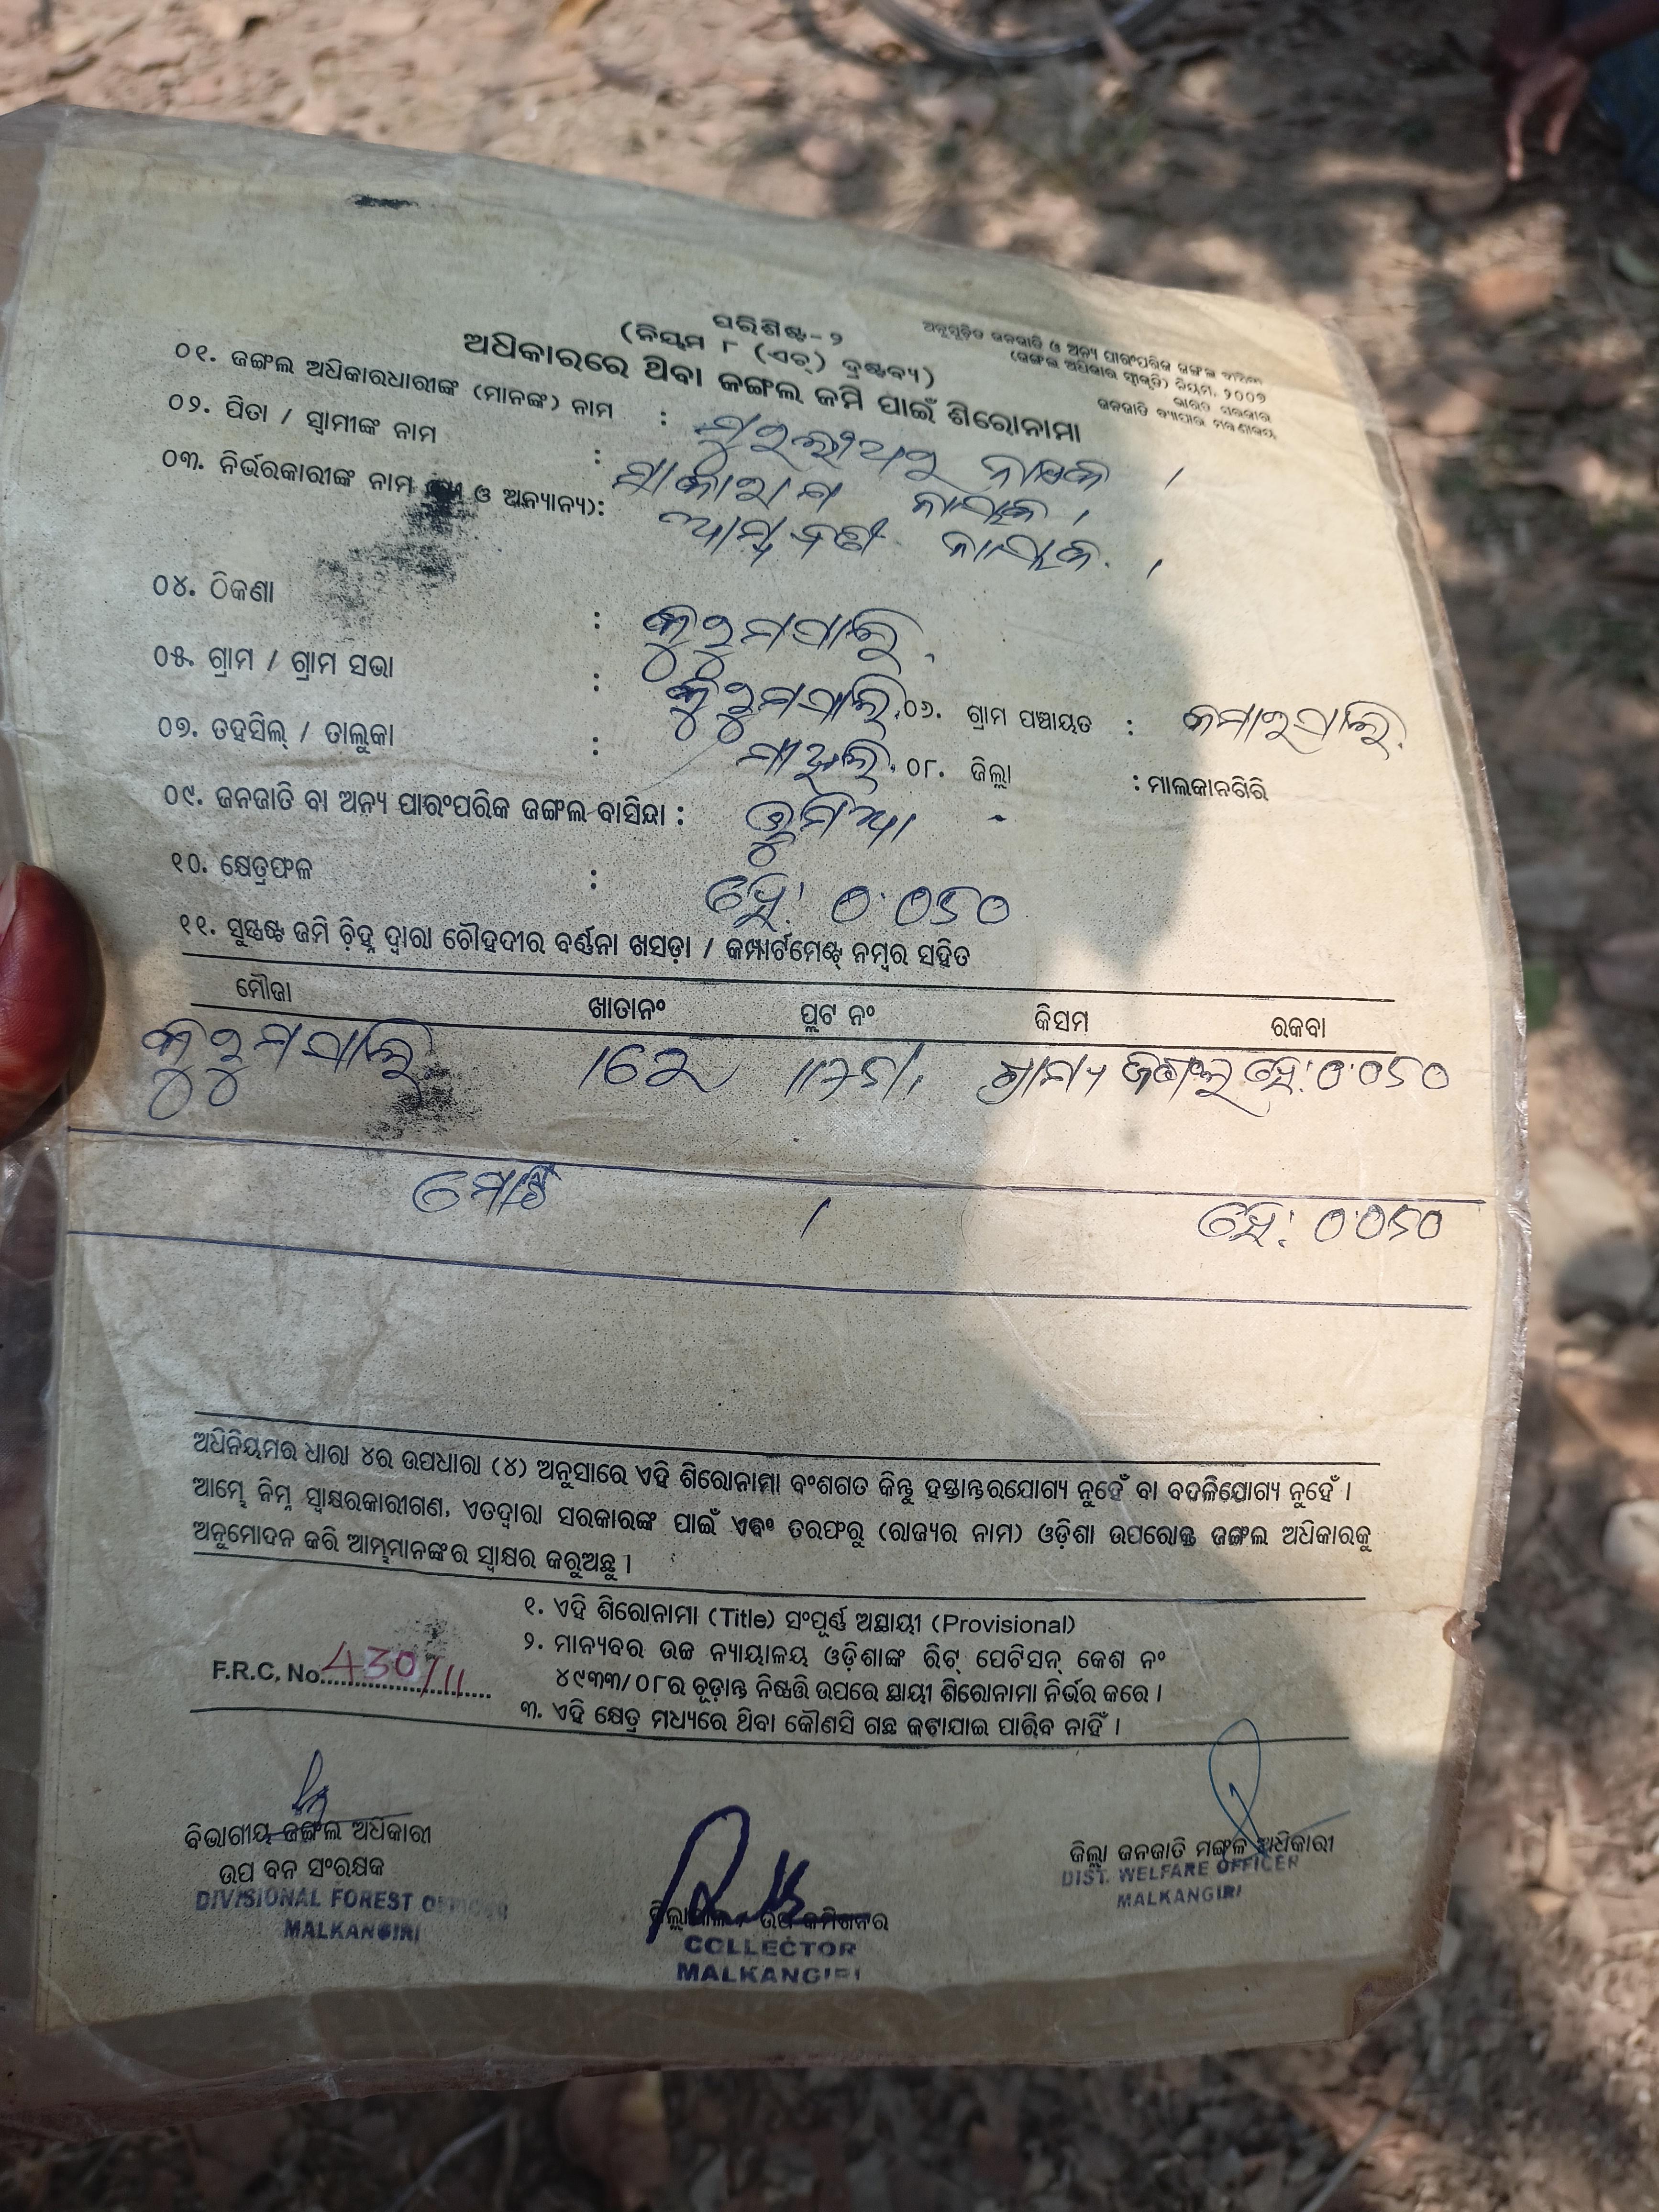 ପରିଶିଷ୍ଟ-୨
(ନିୟମ ୮ (ଏଚ୍) ଦ୍ରଷ୍ଟବ୍ୟ)
ଅନୁସୂଚିତ ଜନଜାତି ଓ ଅନ୍ୟ ପାରଂପରିକ ଜଙ୍ଗଲ
(ଜଙ୍ଗଲ ଅଧିକାର ସ୍ୱୀକୃତି) ନିୟମ, ୨୦୦୭
ଭାରତ ସରକାର
ଜନଜାତି ବ୍ୟାପାର ମନ୍ତ୍ରଣାଳୟ
ଅଧିକାରରେ ଥିବା ଜଙ୍ଗଲ ଜମି ପାଇଁ ଶିରୋନାମା
୦୧. ଜଙ୍ଗଲ ଅଧିକାରଧାରୀଙ୍କ (ମାନଙ୍କ) ନାମ : ନାୟକ ।
୦୨. ପିତା / ସ୍ୱାମୀଙ୍କ ନାମ : ନାୟକ ।
୦୩. ନିର୍ଭରକାରୀଙ୍କ ନାମ ଓ ଅନ୍ୟାନ୍ୟ): ନାୟକ ।
୦୪. ଠିକଣା : କୁରୁମପାଲି
୦୫. ଗ୍ରାମ / ଗ୍ରାମ ସଭା : କୁରୁମପାଲି ୦୬. ଗ୍ରାମ ପଞ୍ଚାୟତ :
୦୭. ତହସିଲ୍ / ତାଲୁକା : ମାଥିଲି ୦୮. ଜିଲ୍ଲା : ମାଲକାନଗିରି
୦୯. ଜନଜାତି ବା ଅନ୍ୟ ପାରଂପରିକ ଜଙ୍ଗଲ ବାସିନ୍ଦା : ଭୂମିଆ
୧୦. କ୍ଷେତ୍ରଫଳ : ହେ: 0.050
୧୧. ସୁସ୍ପଷ୍ଟ ଜମି ଚିହ୍ନ ଦ୍ୱାରା ଚୌହଦୀର ବର୍ଣ୍ଣନା ଖସଡ଼ା / କମ୍ପାର୍ଟମେଣ୍ଟ୍ ନମ୍ବର ସହିତ
ମୌଜା ଖାତାନଂ ପ୍ଲଟ ନଂ କିସମ ରକବା
କୁରୁମପାଲି ଗ୍ରାମ୍ୟ ଜଙ୍ଗଲ ହେ: 0.050
ମୋଟ 1 ହେ: 0.050
ଅଧିନିୟମର ଧାରା ୪ର ଉପଧାରା (୪) ଅନୁସାରେ ଏହି ଶିରୋନାମା ବଂଶଗତ କିନ୍ତୁ ହସ୍ତାନ୍ତରଯୋଗ୍ୟ ନୁହେଁ ବା ବଦଳିଯୋଗ୍ୟ ନୁହେଁ ।
ଆମ୍ଭେ ନିମ୍ନ ସ୍ୱାକ୍ଷରକାରୀଗଣ, ଏତଦ୍ୱାରା ସରକାରଙ୍କ ପାଇଁ ଏବଂ ତରଫରୁ (ରାଜ୍ୟର ନାମ) ଓଡ଼ିଶା ଉପରୋକ୍ତ ଜଙ୍ଗଲ ଅଧିକାରକୁ
ଅନୁମୋଦନ କରି ଆମ୍ଭମାନଙ୍କର ସ୍ୱାକ୍ଷର କରୁଅଛୁ ।
୧. ଏହି ଶିରୋନାମା (Title) ସଂପୂର୍ଣ୍ଣ ଅସ୍ଥାୟୀ (Provisional)
୨. ମାନ୍ୟବର ଉଚ୍ଚ ନ୍ୟାୟାଳୟ ଓଡ଼ିଶାଙ୍କ ରିଟ୍ ପେଟିସନ୍ କେଶ ନଂ
୪୯୩୩/୦୮ର ଚୂଡ଼ାନ୍ତ ନିଷ୍ପତ୍ତି ଉପରେ ସ୍ଥାୟୀ ଶିରୋନାମା ନିର୍ଭର କରେ ।
F.R.C. No. 430/11
୩. ଏହି କ୍ଷେତ୍ର ମଧ୍ୟରେ ଥିବା କୌଣସି ଗଛ କଟାଯାଇ ପାରିବ ନାହିଁ ।
ବିଭାଗୀୟ ଜଙ୍ଗଲ ଅଧିକାରୀ
ଉପ ବନ ସଂରକ୍ଷକ
DIVISIONAL FOREST OFFICER
MALKANGIRI
ଉପ କମିଶନର
COLLECTOR
MALKANGIRI
ଜିଲ୍ଲା ଜନଜାତି ମଙ୍ଗଳ ଅଧିକାରୀ
DIST. WELFARE OFFICER
MALKANGIRI